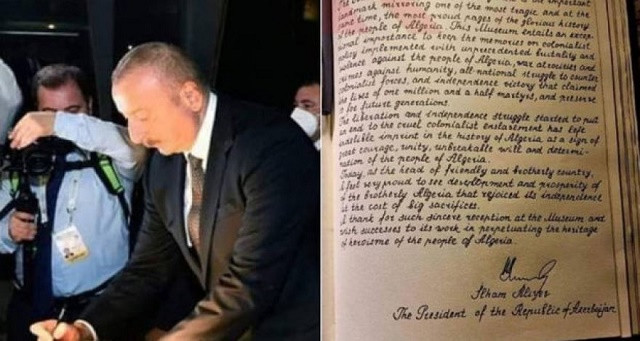 landmark mirroring one of the most tragic and at the
same time, the most proud pages of the glorious history
of the people of Algeria. This Museum entails an excep-
tional importance to keep the memories on colonialist
policy implemented with unprecedented brutality and
violence against the people of Algeria, war atrocities and
crimes against humanity, all-national struggle to counter
colonialist forces, and independence victory that claimed
the lives of one million and a half martyrs, and preserve
it for future generations.
The liberation and independence struggle started to put
an end to the cruel colonialist enslavement has left
indelible imprint in the history of Algeria as a sign of
great courage, unity, unbreakable will and determi-
nation of the people of Algeria.
Today, as the head of friendly and brotherly country,
I feel very proud to see development and prosperity of
the brotherly Algeria that rejoiced its independence
at the cost of big sacrifices.
I thank for such sincere reception at the Museum and
wish successes to its work in perpetuating the heritage
of heroisme of the people of Algeria.
Ilham Aliyev
The President of the Republic of Azerbaijan